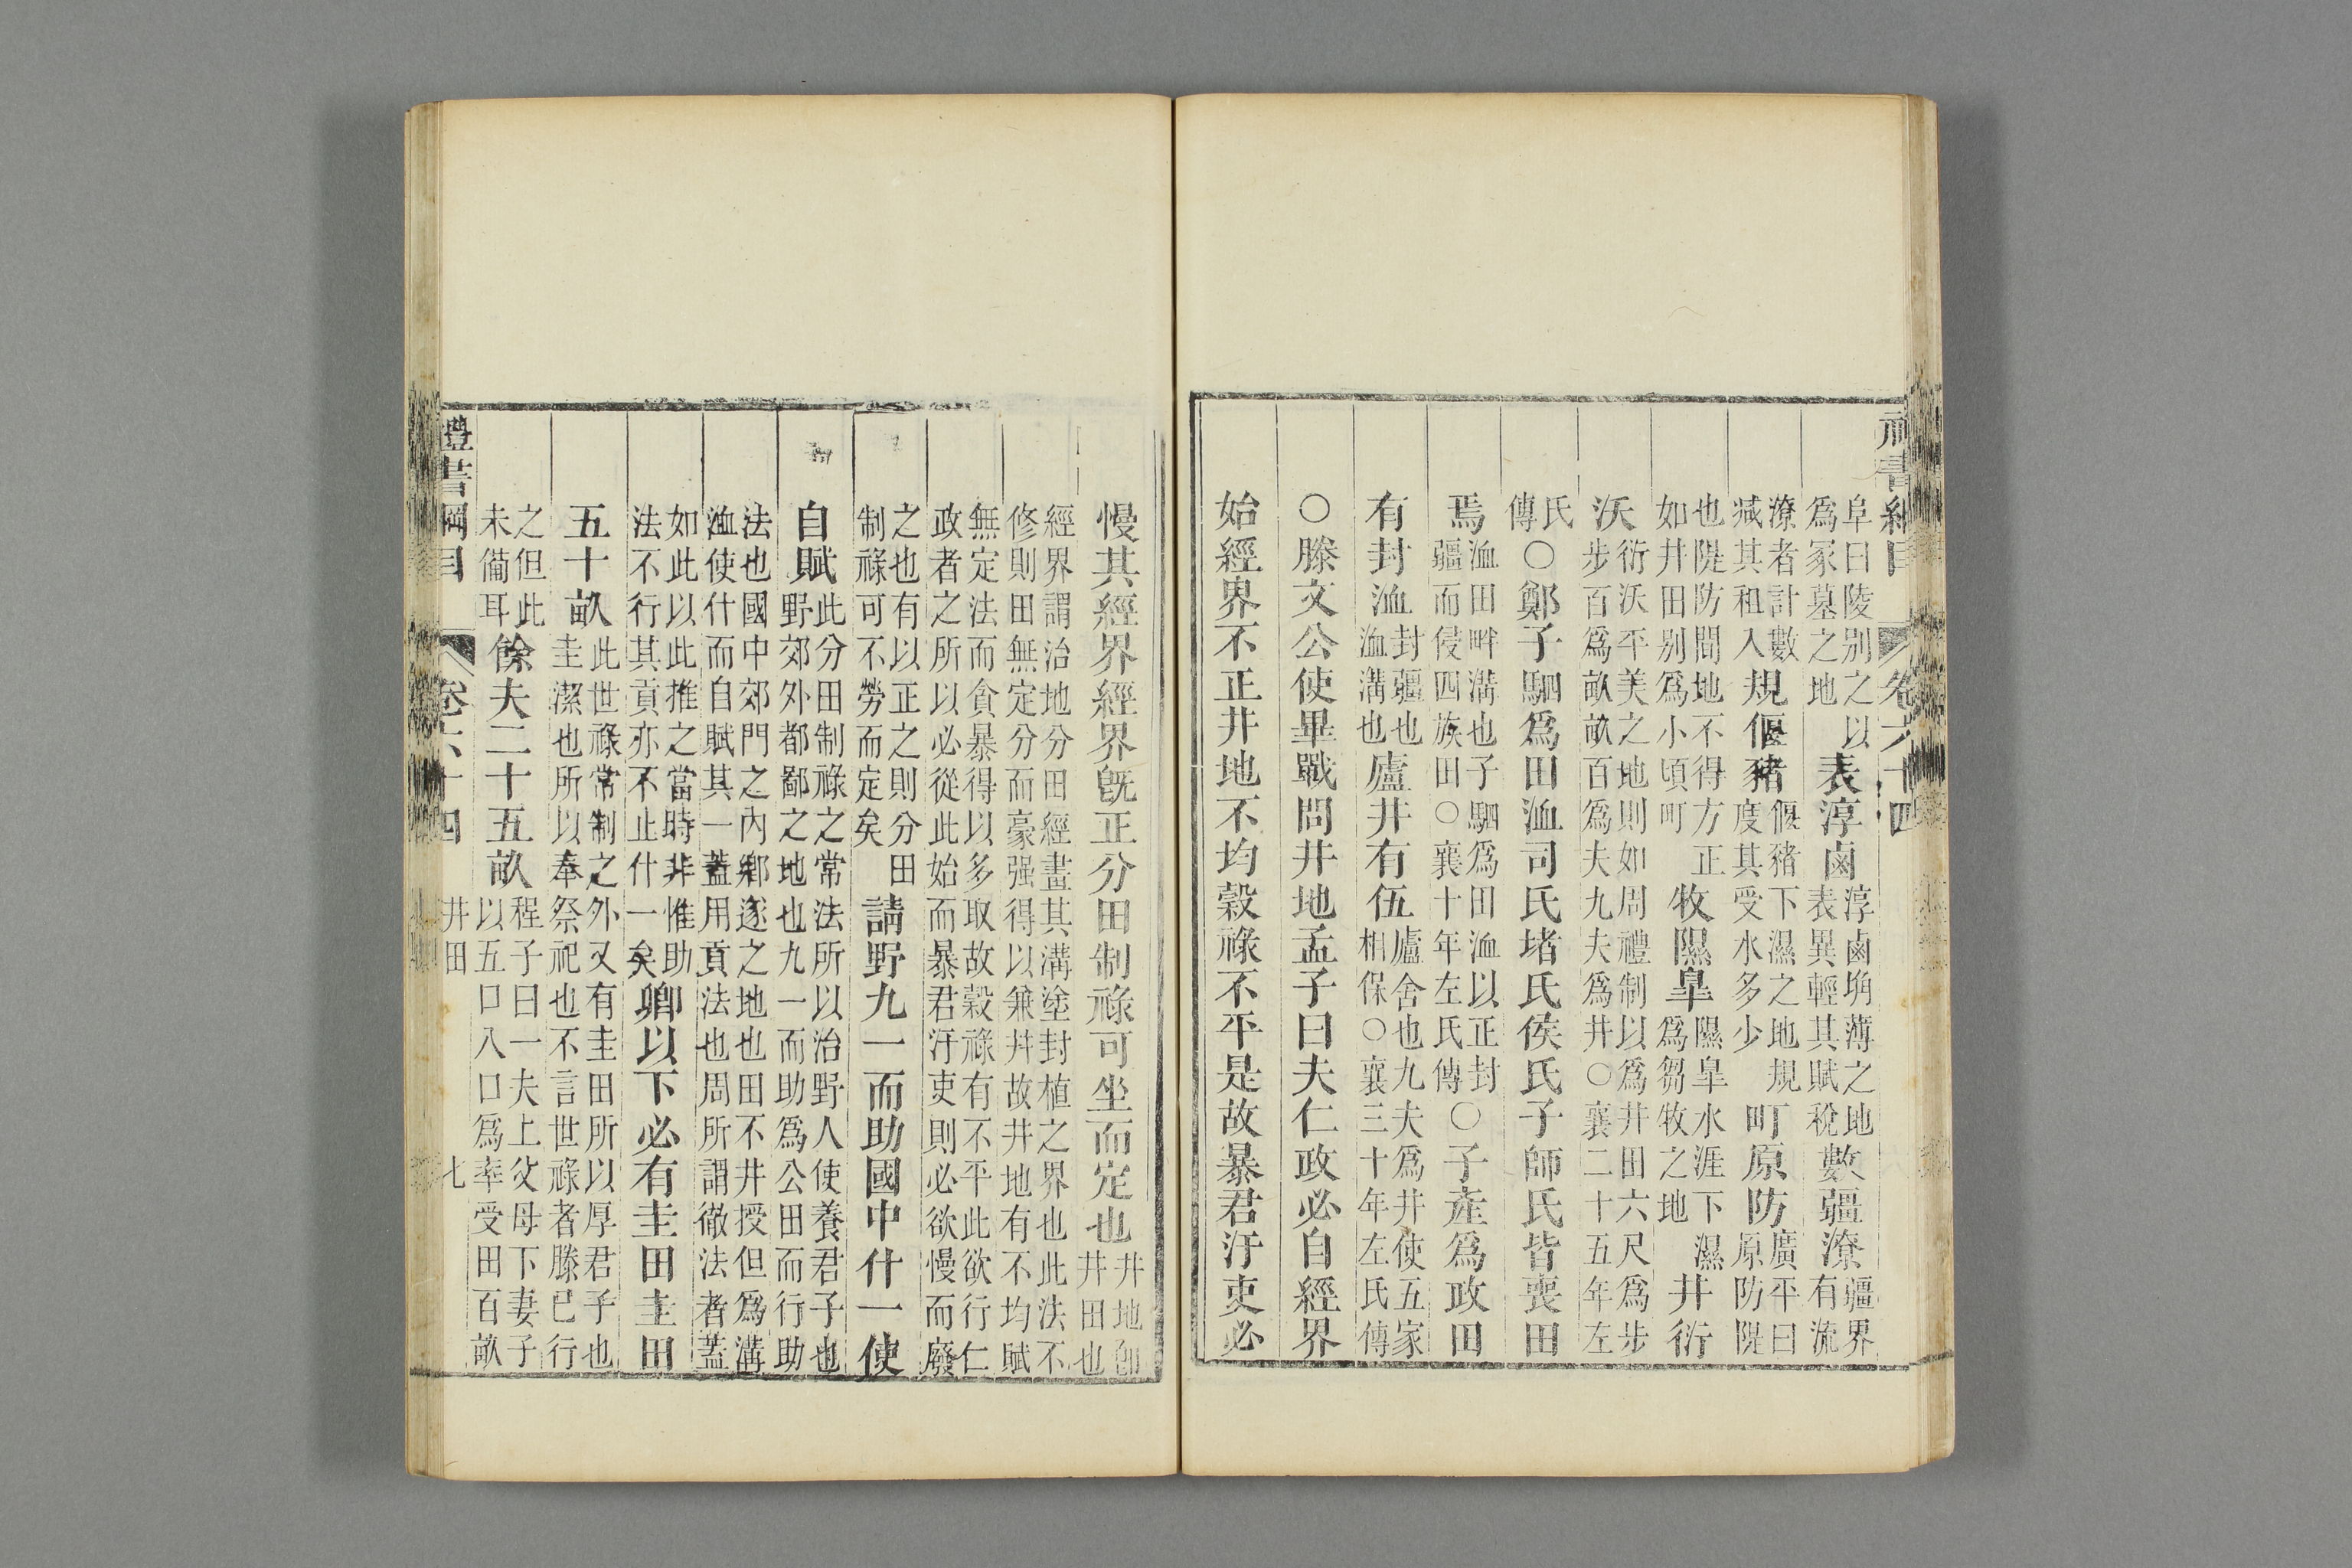 禮書綱目 卷六十四
阜曰陵別之以爲冢墓之地表淳鹵淳鹵埆薄之地表異輕其賦稅數疆潦疆界有流
潦者計數減其租入規偃豬偃豬下濕之地規度其受水多少町原防廣平曰原防隄
也隄防間地不得方正如井田別爲小頃町牧隰皐隰皐水涯下濕爲芻牧之地井衍
沃衍沃平美之地則如周禮制以爲井田六尺爲步步百爲畝畝百爲夫九夫爲井○襄二十五年左
氏傳○鄭子駟爲田洫司氏堵氏侯氏子師氏皆喪田
焉洫田畔溝也子駟爲田洫以正封疆而侵四族田○襄十年左氏傳○子產爲政田
有封洫封疆也洫溝也廬井有伍廬舍也九夫爲井使五家相保○襄三十年左氏傳
○滕文公使畢戰問井地孟子曰夫仁政必自經界
始經界不正井地不均穀祿不平是故暴君汙吏必
慢其經界經界旣正分田制祿可坐而定也井地卽井田也
經界謂治地分田經畫其溝塗封植之界也此法不修則田無定分而豪强得以兼幷故井地有不均賦
無定法而貪暴得以多取故穀祿有不平此欲行仁政者之所以必從此始而暴君汙吏則必欲慢而廢
之也有以正之則分田制祿可不勞而定矣請野九一而助國中什一使
自賦此分田制祿之常法所以治野人使養君子也野郊外都鄙之地也九一而助爲公田而行助
法也國中郊門之內鄉遂之地也田不井授但爲溝洫使什而自賦其一蓋用貢法也周所謂徹法者蓋
如此以此推之當時非惟助法不行其貢亦不止什一矣卿以下必有圭田圭田
五十畝此世祿常制之外又有圭田所以厚君子也圭潔也所以奉祭祀也不言世祿者滕已行
之但此未備耳餘夫二十五畝程子曰一夫上父母下妻子以五口八口爲率受田百畝
禮書綱目 卷六十四 井田 七